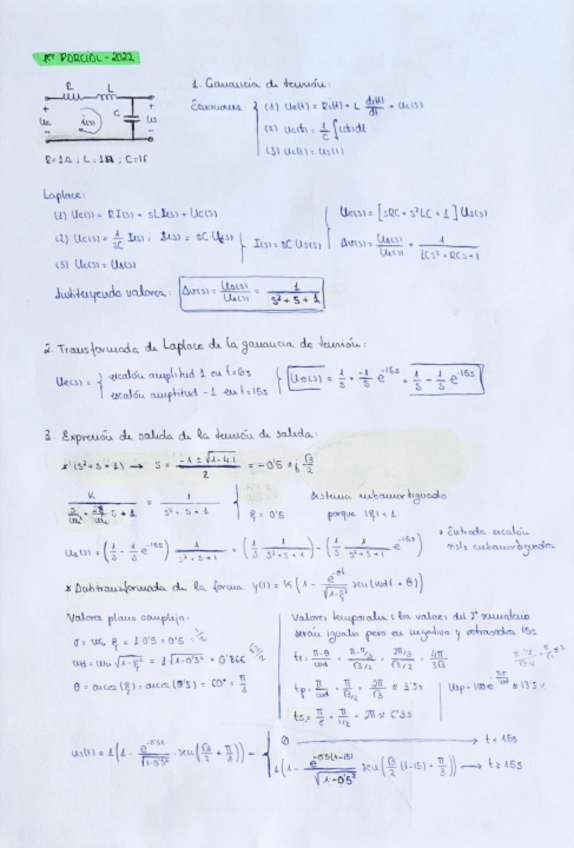 1er PARCIAL - 2022
R L
+ + C
Ue i(t) Us
- -
R=1Ω ; L=1H ; C=1F
1. Ganancia de tensión:
Ecuaciones:
(1) Ue(t) = R i(t) + L di(t)/dt + Uc(t)
(2) Uc(t) = 1/C ∫ i(t)dt
(3) Uc(t) = Us(t)
Laplace:
(1) Ue(s) = R I(s) + sL I(s) + Uc(s)
(2) Uc(s) = 1/sC I(s)
I(s) = sC Us(s)
(3) Uc(s) = Us(s)
Ue(s) = [sRC + s²LC + 1] Us(s)
Av(s) = Us(s)/Ue(s) = 1/(LCs² + RCs + 1)
Sustituyendo valores: Av(s) = Us(s)/Ue(s) = 1/(s² + s + 1)
2. Transformada de Laplace de la ganancia de tensión:
Ue(s) = escalón amplitud 1 en t=0s
escalón amplitud -1 en t=15s
Ue(s) = 1/s + -1/s e^-15s = 1/s - 1/s e^-15s
3. Expresión de salida de la tensión de salida:
* (s² + s + 1) → s = (-1 ± √(1-4·1))/2 = -0'5 ± j √3/2
K / (s²/ωn² + 2ξ/ωn s + 1) = 1/(s² + s + 1)
ξ = 0'5
sistema subamortiguado
porque |ξ| < 1
Us(s) = (1/s - 1/s e^-15s) 1/(s²+s+1) = (1/s 1/(s²+s+1)) - (1/s 1/(s²+s+1) e^-15s)
* Entrada escalón
sist. subamortiguado
* Antitransformada de la forma y(t) = K (1 - e^-σt/√(1-ξ²) sen(ωd t + θ))
Valores plano complejo:
σ = ωn ξ = 1·0'5 = 0'5 = 1/2
ωd = ωn √(1-ξ²) = 1 √(1-0'5²) = 0'866 = √3/2
θ = arcos(ξ) = arcos(0'5) = 60° = π/3
Valores temporales: los valores del 2º sumatorio
serán iguales pero en negativo y retrasados 15s
tr = (π-θ)/ωd = (π-π/3)/(√3/2) = (2π/3)/(√3/2) = 4π/3√3
tp = π/ωd = π/(√3/2) = 2π/√3 ≈ 3'5s
ts = π/σ = π/(1/2) = 2π ≈ 6'3s
us(t) = 1 (1 - e^-0'5t/√(1-0'5²) · sen(√3/2 + π/3)) -
0 → t < 15s
1 (1 - e^-0'5(t-15)/√(1-0'5²) sen(√3/2 (t-15) + π/3)) → t ≥ 15s